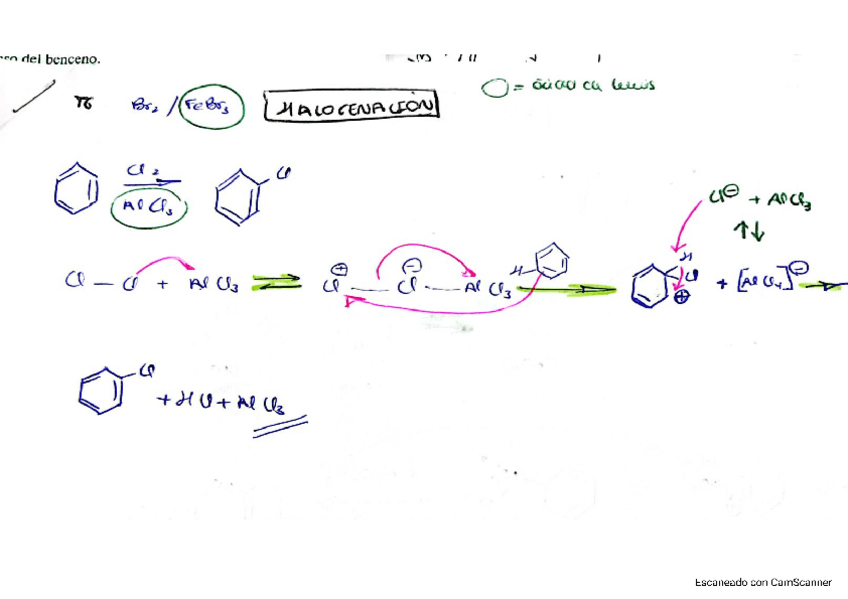 del benceno.
Br₂ / FeBr₃ HALOGENACIÓN = ácido de Lewis
Cl₂
AlCl₃
Cl
Cl⊖ + AlCl₃
Cl — Cl + AlCl₃ ⇌ Cl⊕ — Cl⊖ — AlCl₃ H → H Cl ⊕ + [AlCl₄]⊖ →
Cl
+ HCl + AlCl₃
Escaneado con CamScanner